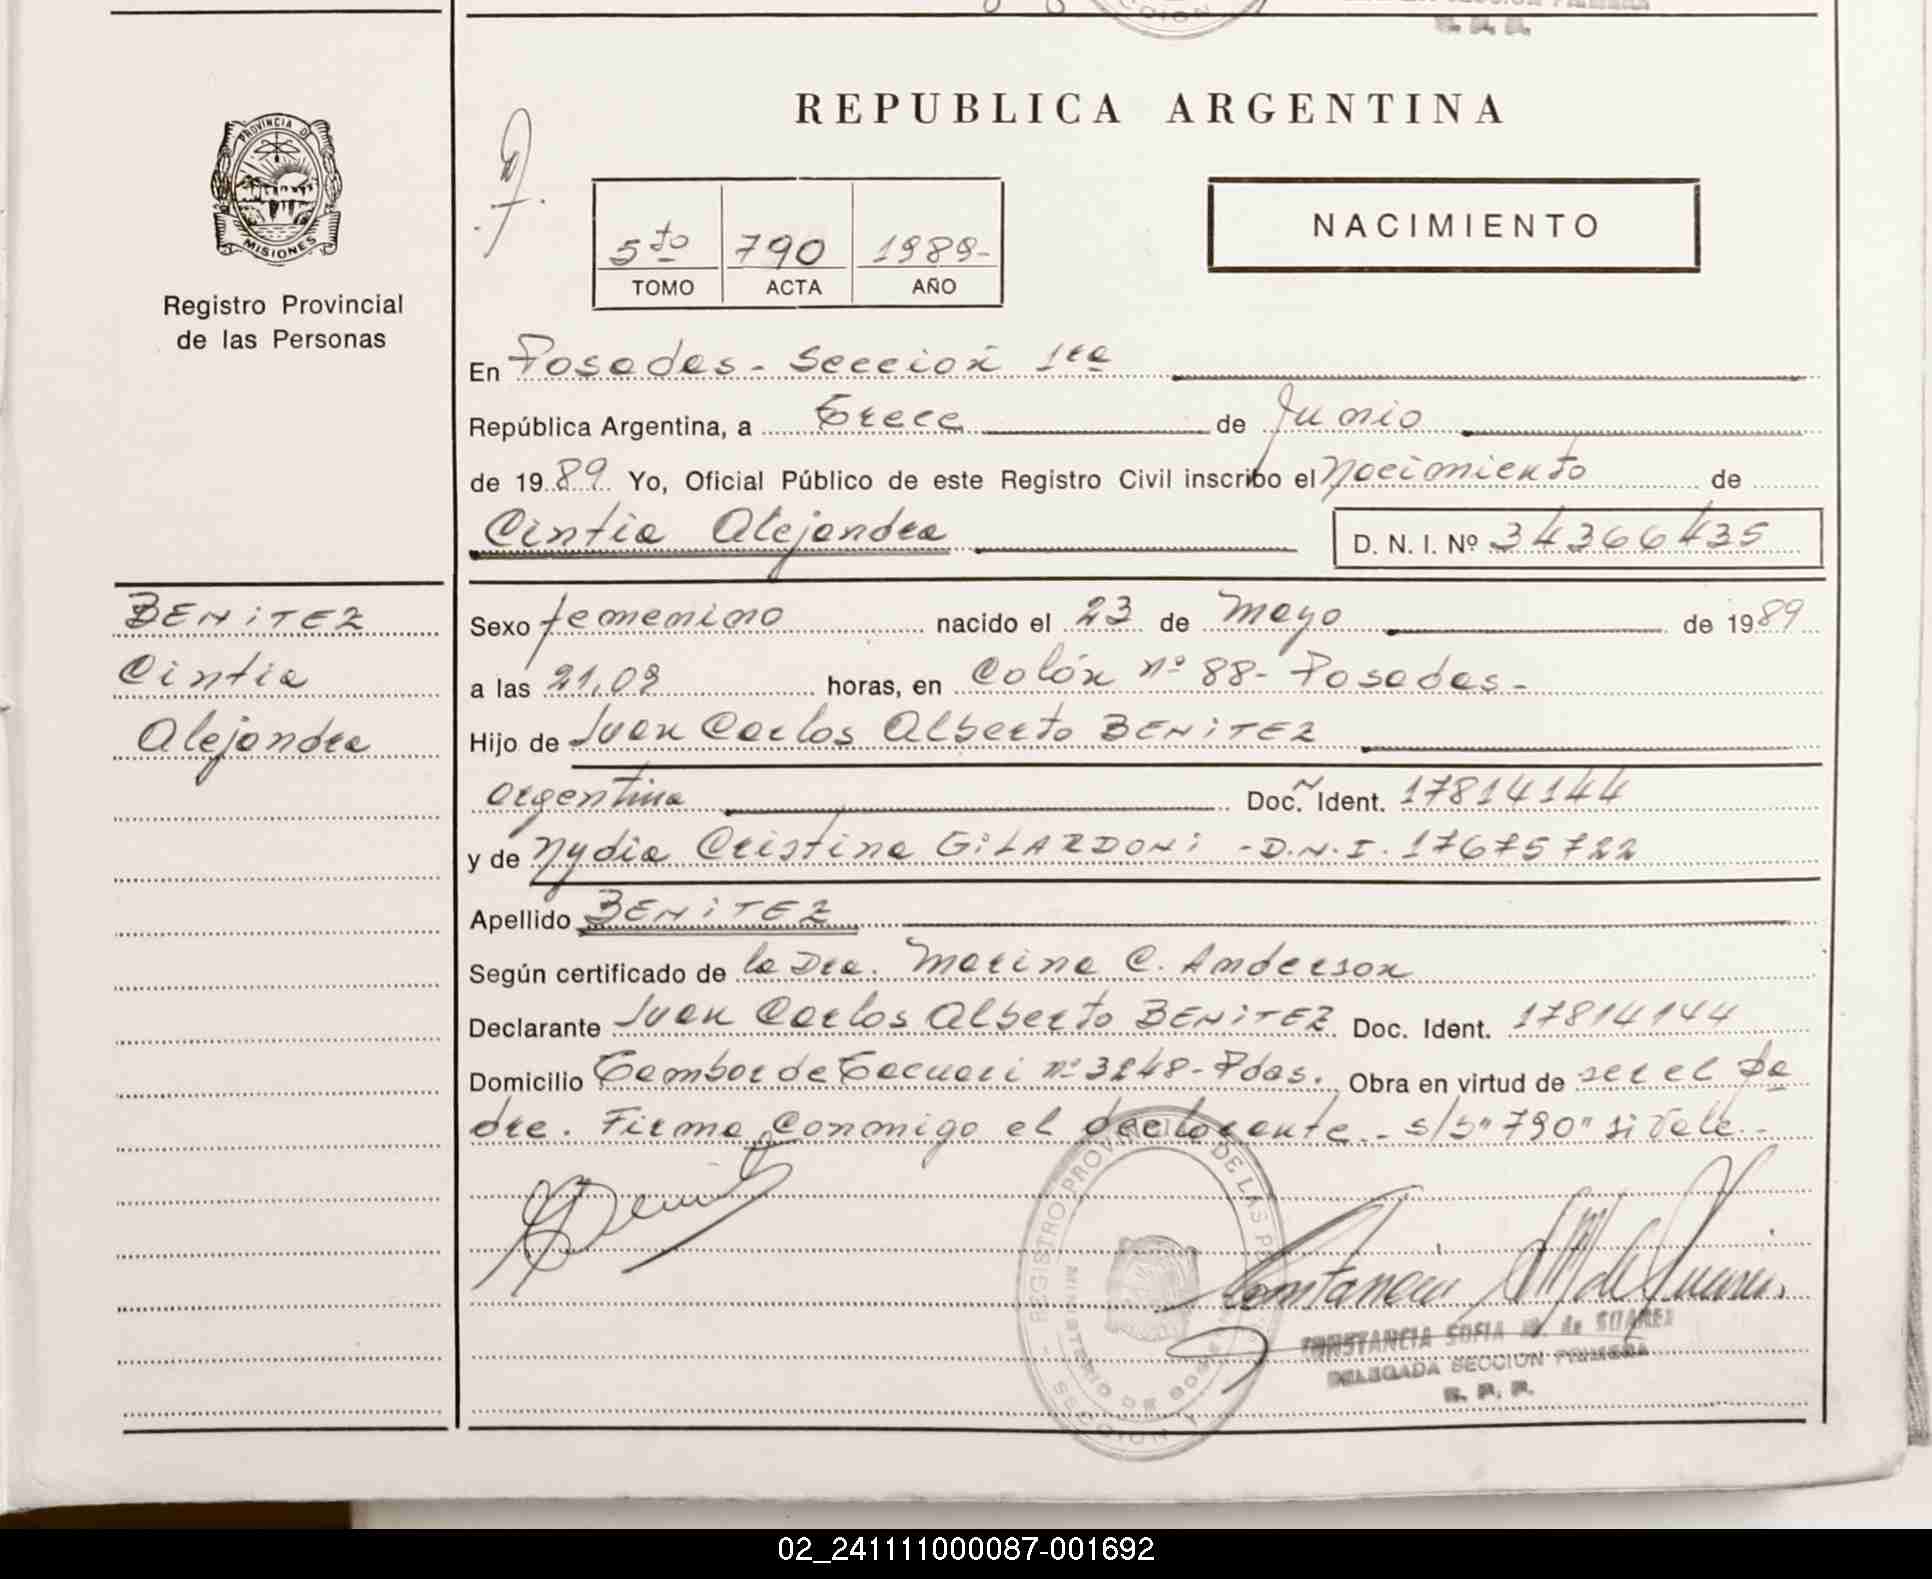 REPUBLICA ARGENTINA
PROVINCIA DE
MISIONES
Registro Provincial
de las Personas
5to 790 1989-
TOMO ACTA AÑO
NACIMIENTO
En Posadas - Sección 1ra
República Argentina, a Trece de Junio
de 1989 Yo, Oficial Público de este Registro Civil inscribo el Nacimiento de
Cintia Alejandra D. N. I. Nº 34366435
BENiTEZ
Cintia
Alejandra
Sexo femenino nacido el 23 de Mayo de 1989
a las 21,09 horas, en Colón nº 88- Posadas-
Hijo de Juan Carlos Alberto BENiTEZ
argentina Doc. Ident. 17814144
y de Nydia Cristina GiLARDONi - D.N.I. 17675722
Apellido BENiTEZ
Según certificado de la Dra. Marina C. Anderson
Declarante Juan Carlos Alberto BENiTEZ Doc. Ident. 17814144
Domicilio Tambor de Tacuari nº 3248- Pdas. Obra en virtud de ser el pa
dre. Firma conmigo el declarante.- s/b "790" si Vale.-
REGISTRO PROVINCIAL DE LAS
MINISTERIO DE GOB
SECCION 1
CONSTANCIA SOFIA M. de SUAREZ
DELEGADA SECCION PRIMERA
R. P. P.
02_241111000087-001692